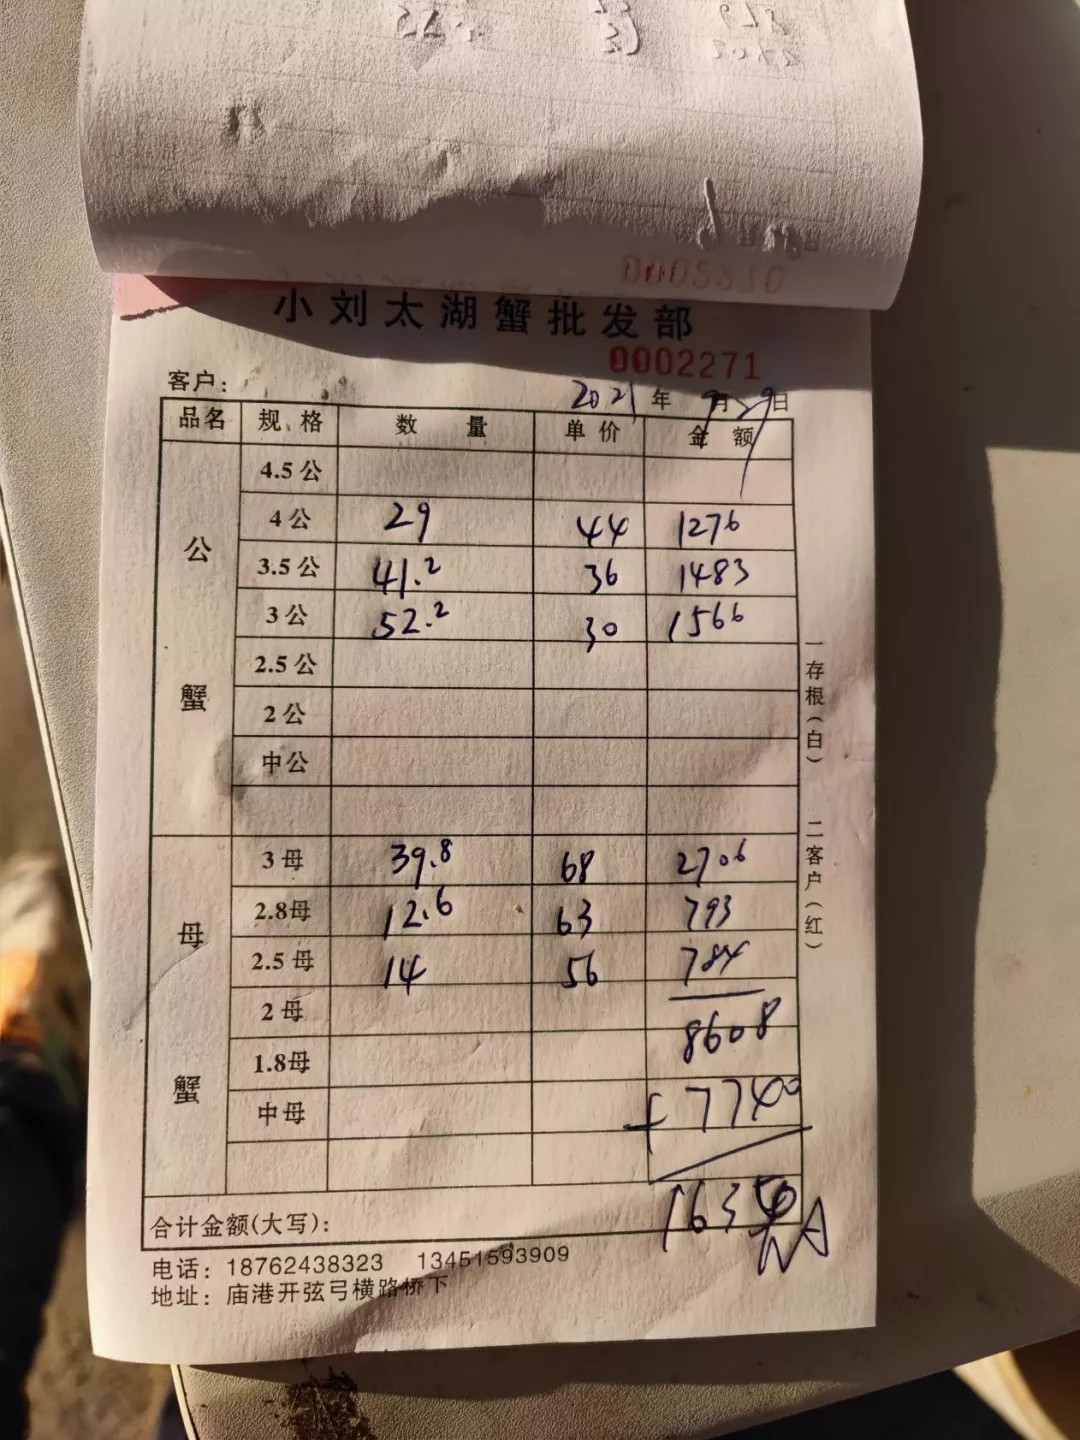 小刘太湖蟹批发部
0002271
客户: 2021年9月29日
品名 规格 数量 单价 金额
公蟹
4.5公
4公 29 44 1276
3.5公 41.2 36 1483
3公 52.2 30 1566
2.5公
2公
中公
母蟹
3母 39.8 68 2706
2.8母 12.6 63 793
2.5母 14 56 784
2母 8608
1.8母
中母 +7740
合计金额(大写):
电话: 18762438323 13451593909
地址: 庙港开弦弓横路桥下
一存根(白) 二客户(红)